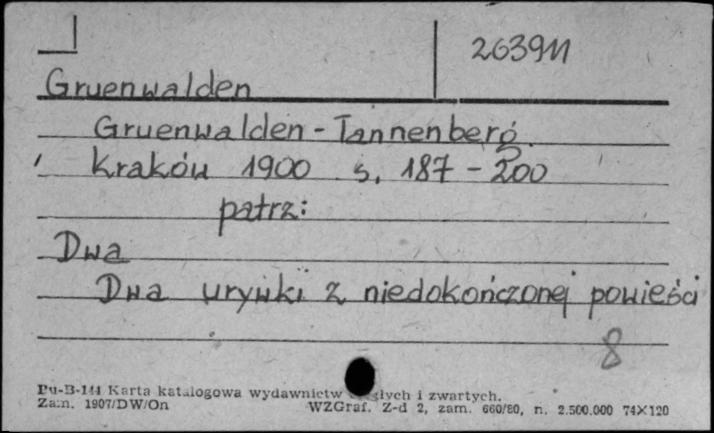 263911
Gruenwalden
Gruenwalden - Tannenberg.
Kraków 1900 s. 187 - 200
patrz:
Dwa
Dwa urywki z niedokończonej powieści
8
Pu-B-144 Karta katalogowa wydawnictw ciągłych i zwartych.
Zam. 1907/DW/On WZGraf. Z-d 2, zam. 660/80, n. 2.500.000 74×120